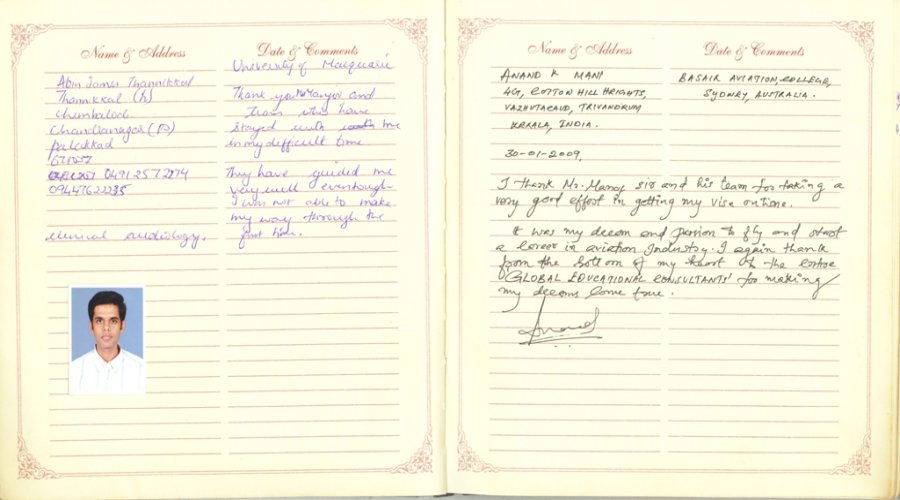 Name & Address
Abin James Thannikkal
Thannikkal (h)
Chembalode
Chandranagar (P)
palakkad
0491 2572774
09447622235
clinical audiology.
Date & Comments
University of Macquarie
Thank you Mr Manoj and
Team who have
stayed with me
in my difficult time.
They have guided me
very well eventhough
I was not able to make
my way through the
first time.
Name & Address
ANAND K MANI
4G1, COTTON HILL HEIGHTS,
VAZHUTACAUD, TRIVANDRUM
KERALA, INDIA.
30-01-2009,
Date & Comments
BASAIR AVIATION, COLLEGE,
SYDNEY, AUSTRALIA.
I thank Mr. Manoj sir and his team for taking a
very good effort in getting my visa ontime.
It was my dream and passion to fly and start
a career in aviation Industry. I again thank
from the bottom of my heart to the entire
'GLOBAL EDUCATIONAL CONSULTANTS' for making
my dreams come true.
Anand